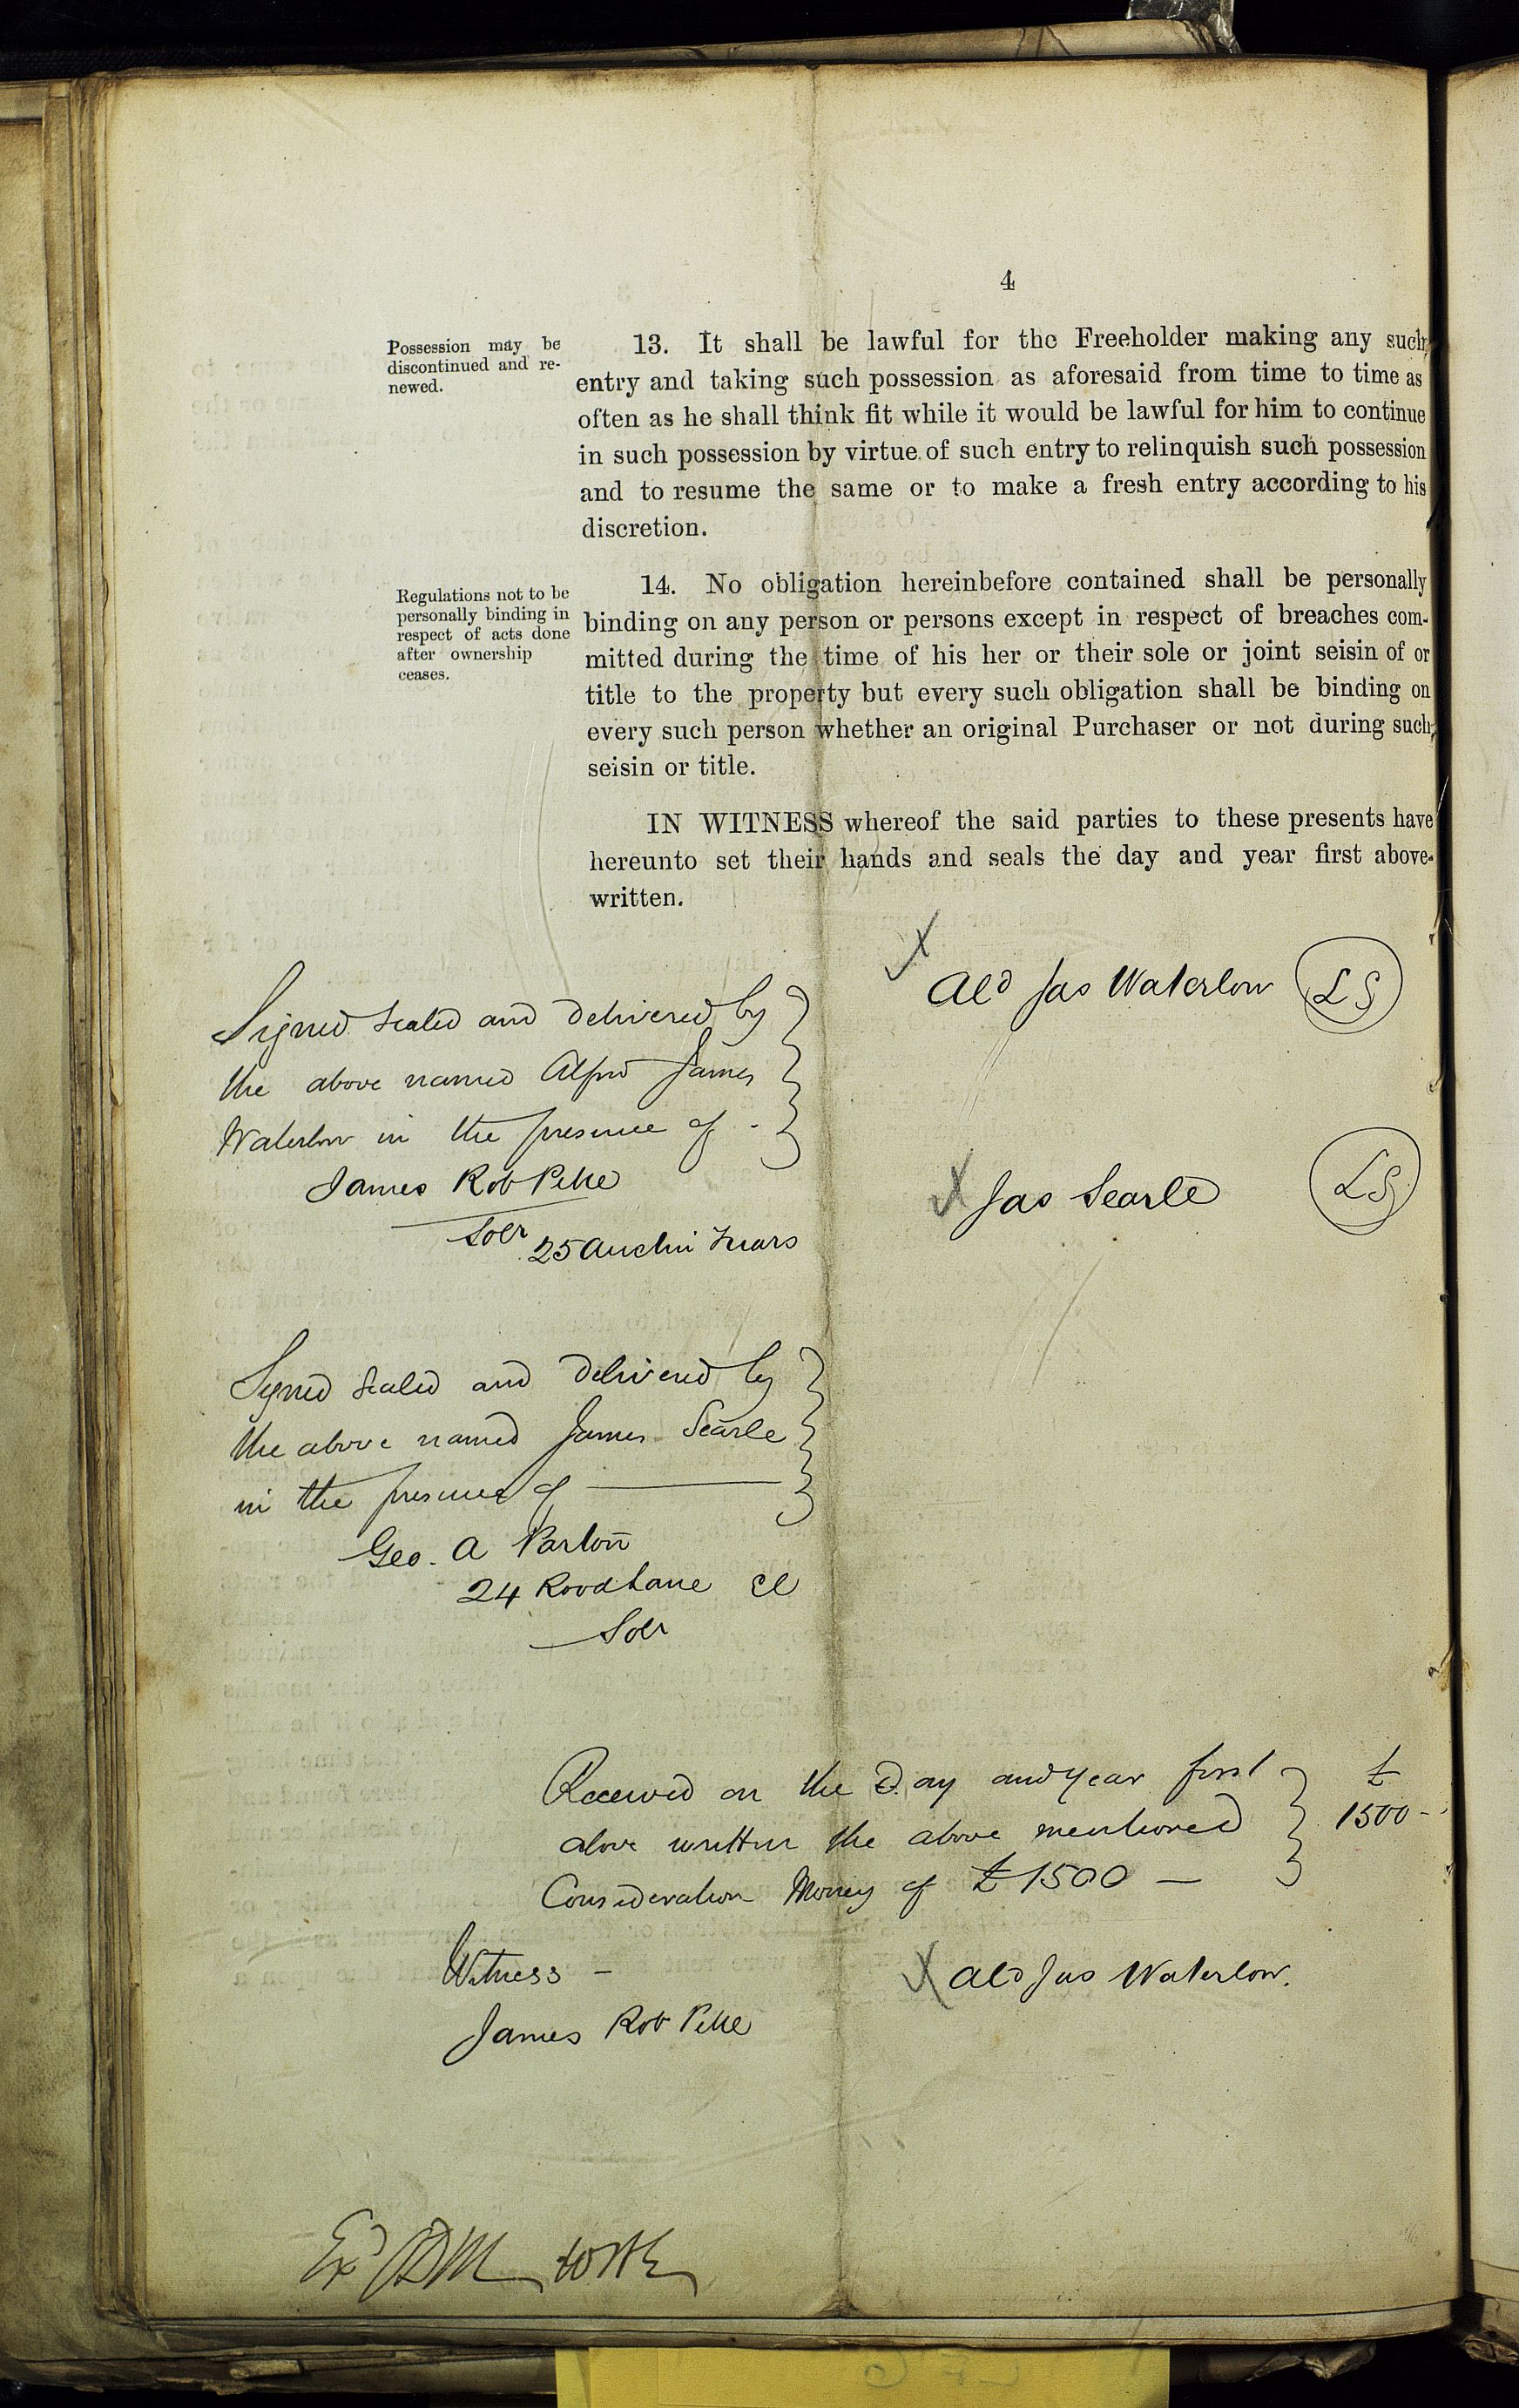 4
Possession may be
discontinued and re-
newed.
13. It shall be lawful for the Freeholder making any such
entry and taking such possession as aforesaid from time to time as
often as he shall think fit while it would be lawful for him to continue
in such possession by virtue of such entry to relinquish such possession
and to resume the same or to make a fresh entry according to his
discretion.
Regulations not to be
personally binding in
respect of acts done
after ownership
ceases.
14. No obligation hereinbefore contained shall be personally
binding on any person or persons except in respect of breaches com-
mitted during the time of his her or their sole or joint seisin of or
title to the property but every such obligation shall be binding on
every such person whether an original Purchaser or not during such
seisin or title.
IN WITNESS whereof the said parties to these presents have
hereunto set their hands and seals the day and year first above-
written.
Signed sealed and delivered by
the above named Alfred James
Waterlow in the presence of -
James Rob
Solr 25
Alfd Jas Waterlow LS
Jas Searle LS
Signed sealed and delivered by
the above named James Searle
in the presence of
Geo. A
24 Rood Lane
Solr
Received on the Day and Year first
above written the above mentioned
Consideration Money of £1500 —
£
1500 -
Witness -
James Rob
Alfd Jas Waterlow.